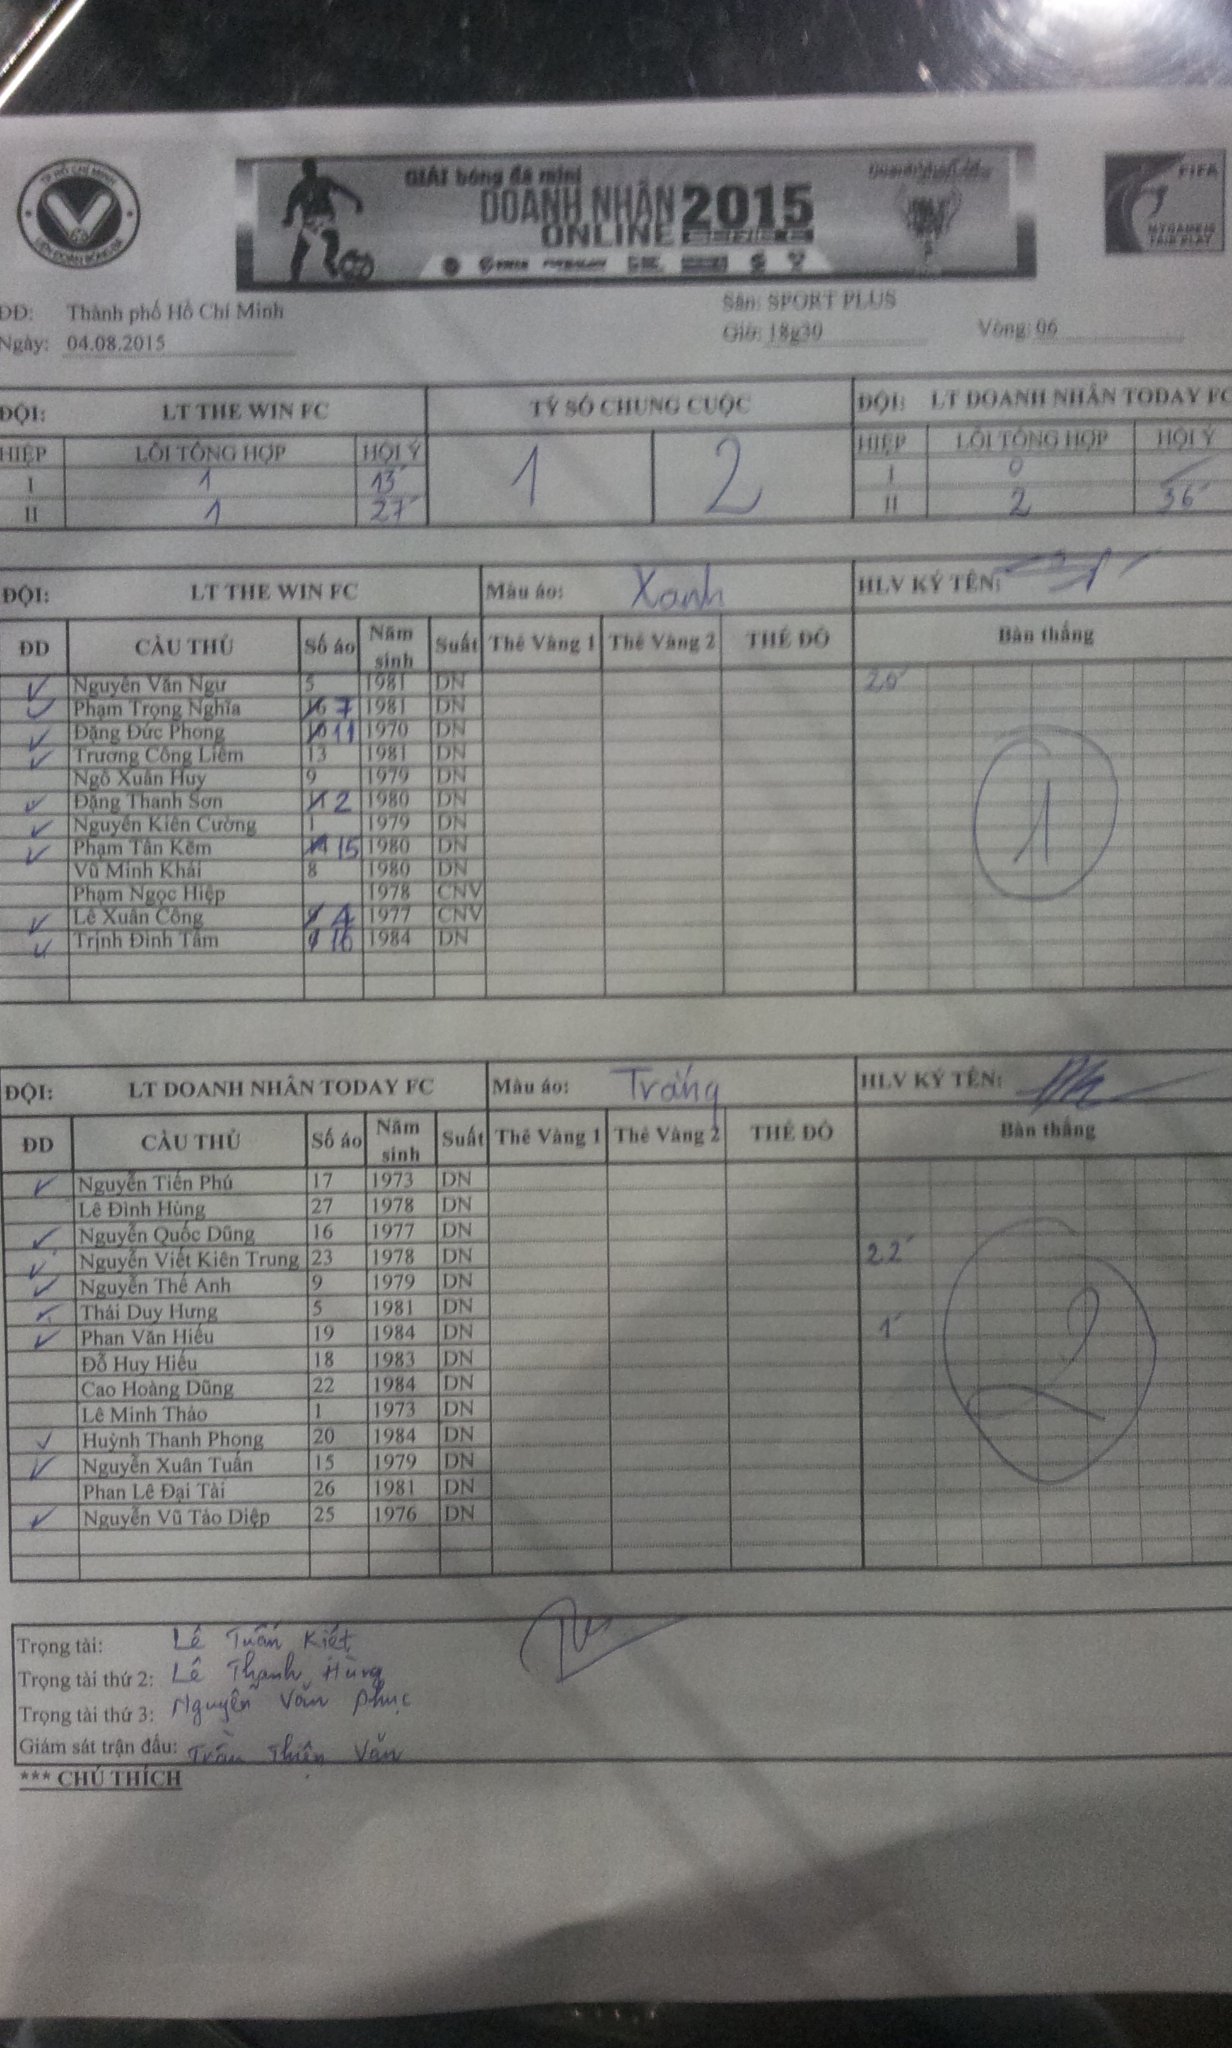 TP HỒ CHÍ MINH
LIÊN ĐOÀN BÓNG ĐÁ
GIẢI bóng đá mini
DOANH NHÂN 2015
ONLINE
FIFA
MY GAME IS
FAIR PLAY
ĐĐ: Thành phố Hồ Chí Minh Sân: SPORT PLUS
Ngày: 04.08.2015 Giờ: 18g30 Vòng: 06
ĐỘI: LT THE WIN FC TỶ SỐ CHUNG CUỘC ĐỘI: LT DOANH NHÂN TODAY FC
HIỆP LỖI TỔNG HỢP HỘI Ý 1 2 HIỆP LỖI TỔNG HỢP HỘI Ý
I 1 13' I 0
II 1 27' II 2 36'
ĐỘI: LT THE WIN FC Màu áo: Xanh HLV KÝ TÊN:
ĐD CẦU THỦ Số áo Năm sinh Suất Thẻ Vàng 1 Thẻ Vàng 2 THẺ ĐỎ Bàn thắng
Nguyễn Văn Ngư 5 1981 DN 20'
Phạm Trọng Nghĩa 7 1981 DN
Đặng Đức Phong 11 1970 DN
Trương Công Liêm 13 1981 DN
Ngô Xuân Huy 9 1979 DN
Đặng Thanh Sơn 2 1980 DN
Nguyễn Kiên Cường 1 1979 DN
Phạm Tấn Kêm 15 1980 DN
Vũ Minh Khải 8 1980 DN
Phạm Ngọc Hiệp 1978 CNV
Lê Xuân Công 4 1977 CNV
Trịnh Đình Tâm 16 1984 DN
1
ĐỘI: LT DOANH NHÂN TODAY FC Màu áo: Trắng HLV KÝ TÊN:
ĐD CẦU THỦ Số áo Năm sinh Suất Thẻ Vàng 1 Thẻ Vàng 2 THẺ ĐỎ Bàn thắng
Nguyễn Tiến Phú 17 1973 DN
Lê Đình Hùng 27 1978 DN
Nguyễn Quốc Dũng 16 1977 DN
Nguyễn Viết Kiên Trung 23 1978 DN 22'
Nguyễn Thế Anh 9 1979 DN
Thái Duy Hưng 5 1981 DN
Phan Văn Hiếu 19 1984 DN 1'
Đỗ Huy Hiếu 18 1983 DN
Cao Hoàng Dũng 22 1984 DN
Lê Minh Thảo 1 1973 DN
Huỳnh Thanh Phong 20 1984 DN
Nguyễn Xuân Tuấn 15 1979 DN
Phan Lê Đại Tài 26 1981 DN
Nguyễn Vũ Tảo Diệp 25 1976 DN
2
Trọng tài: Lê Tuấn Kiết
Trọng tài thứ 2: Lê Thanh Hùng
Trọng tài thứ 3: Nguyễn Văn Phục
Giám sát trận đấu: Trần Thiện Văn
*** CHÚ THÍCH